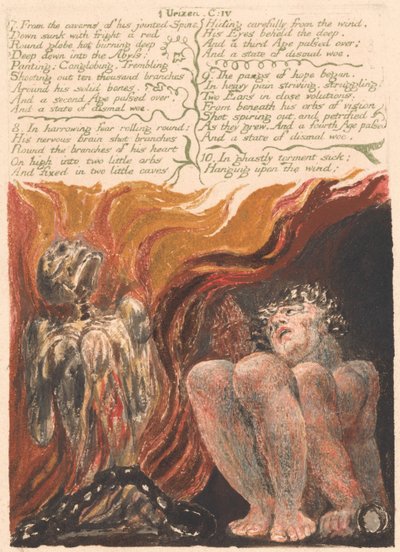 Urizen. C: IV
7. From the caverns of his jointed Spine
Down sunk with fright a red
Round globe hot burning deep
Deep down into the Abyss:
Panting: Conglobing, Trembling
Shooting out ten thousand branches
Around his solid bones.
And a second Age passed over,
And a state of dismal woe.
8. In harrowing fear rolling round;
His nervous brain shot branches
Round the branches of his heart
On high into two little orbs
And fixed in two little caves
Hiding carefully from the wind,
His Eyes beheld the deep,
And a third Age passed over;
And a state of dismal woe.
9. The pangs of hope began,
In heavy pain striving, struggling
Two Ears in close volutions
From beneath his orbs of vision
Shot spiring out and petrified
As they grew. And a fourth Age passed
And a state of dismal woe.
10. In ghastly torment sick;
Hanging upon the wind;